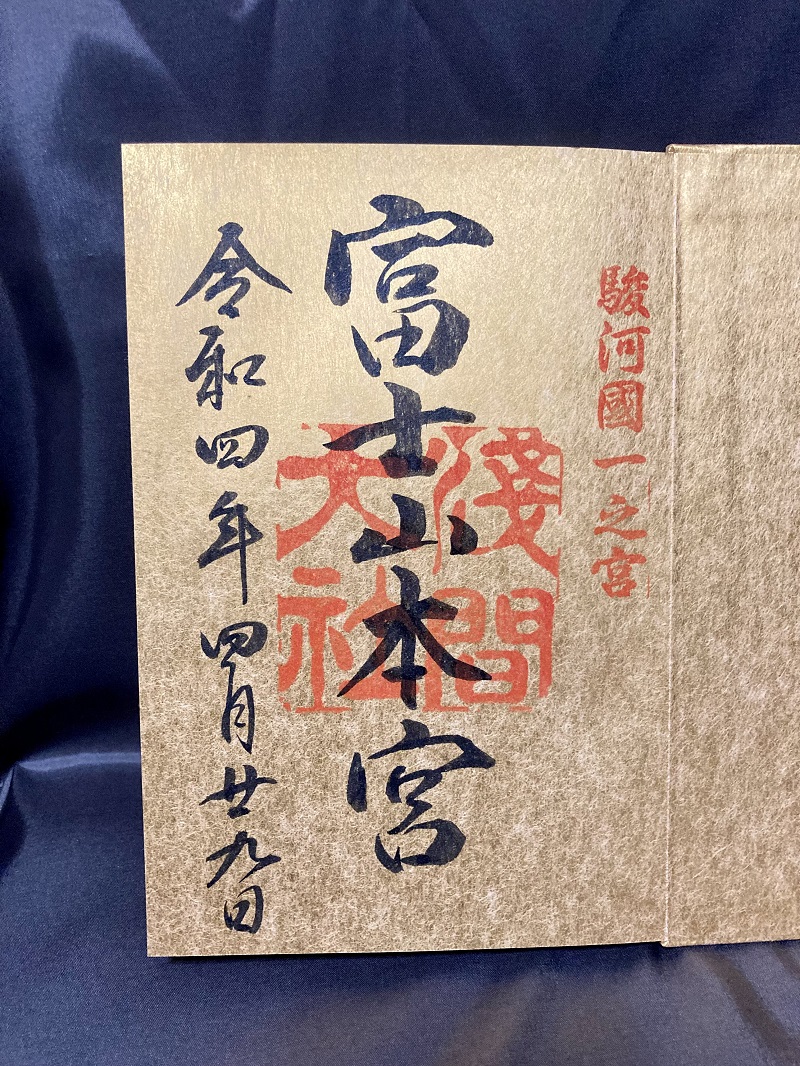 駿河國一之宮
富士山本宮
淺間大社
令和四年四月廿九日